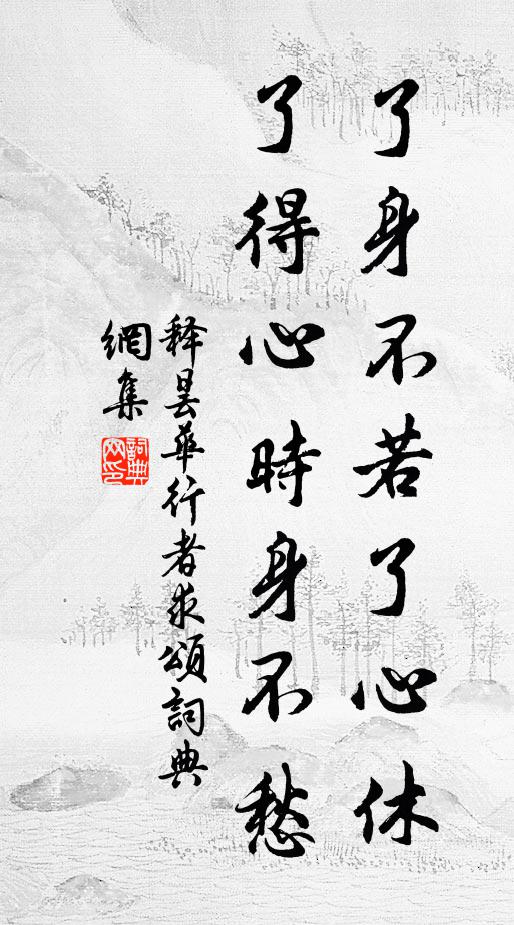 了身不若了心休
了得心時身不愁
释曇華行者求頌詞典
網集
詞典
网印